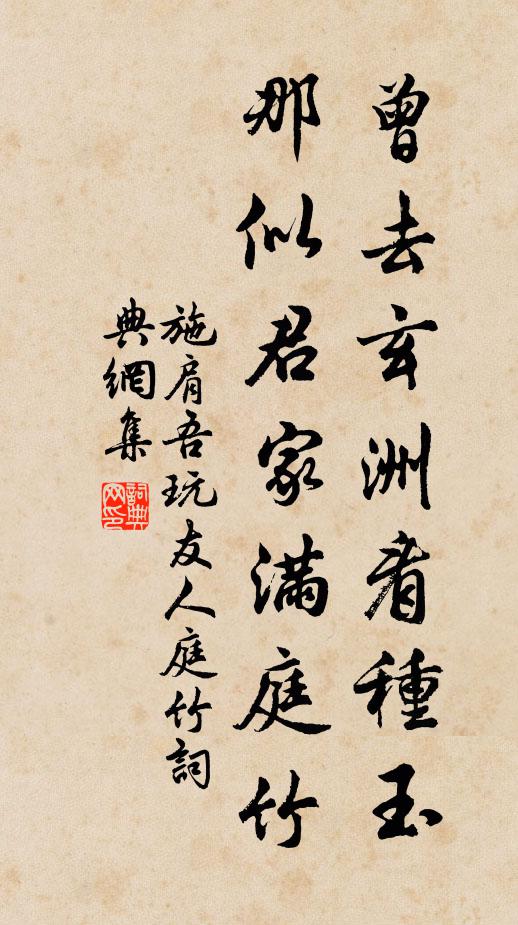 曾去玄洲看種玉
那似君家滿庭竹
施肩吾玩友人庭竹詞
典網集
詞典網印